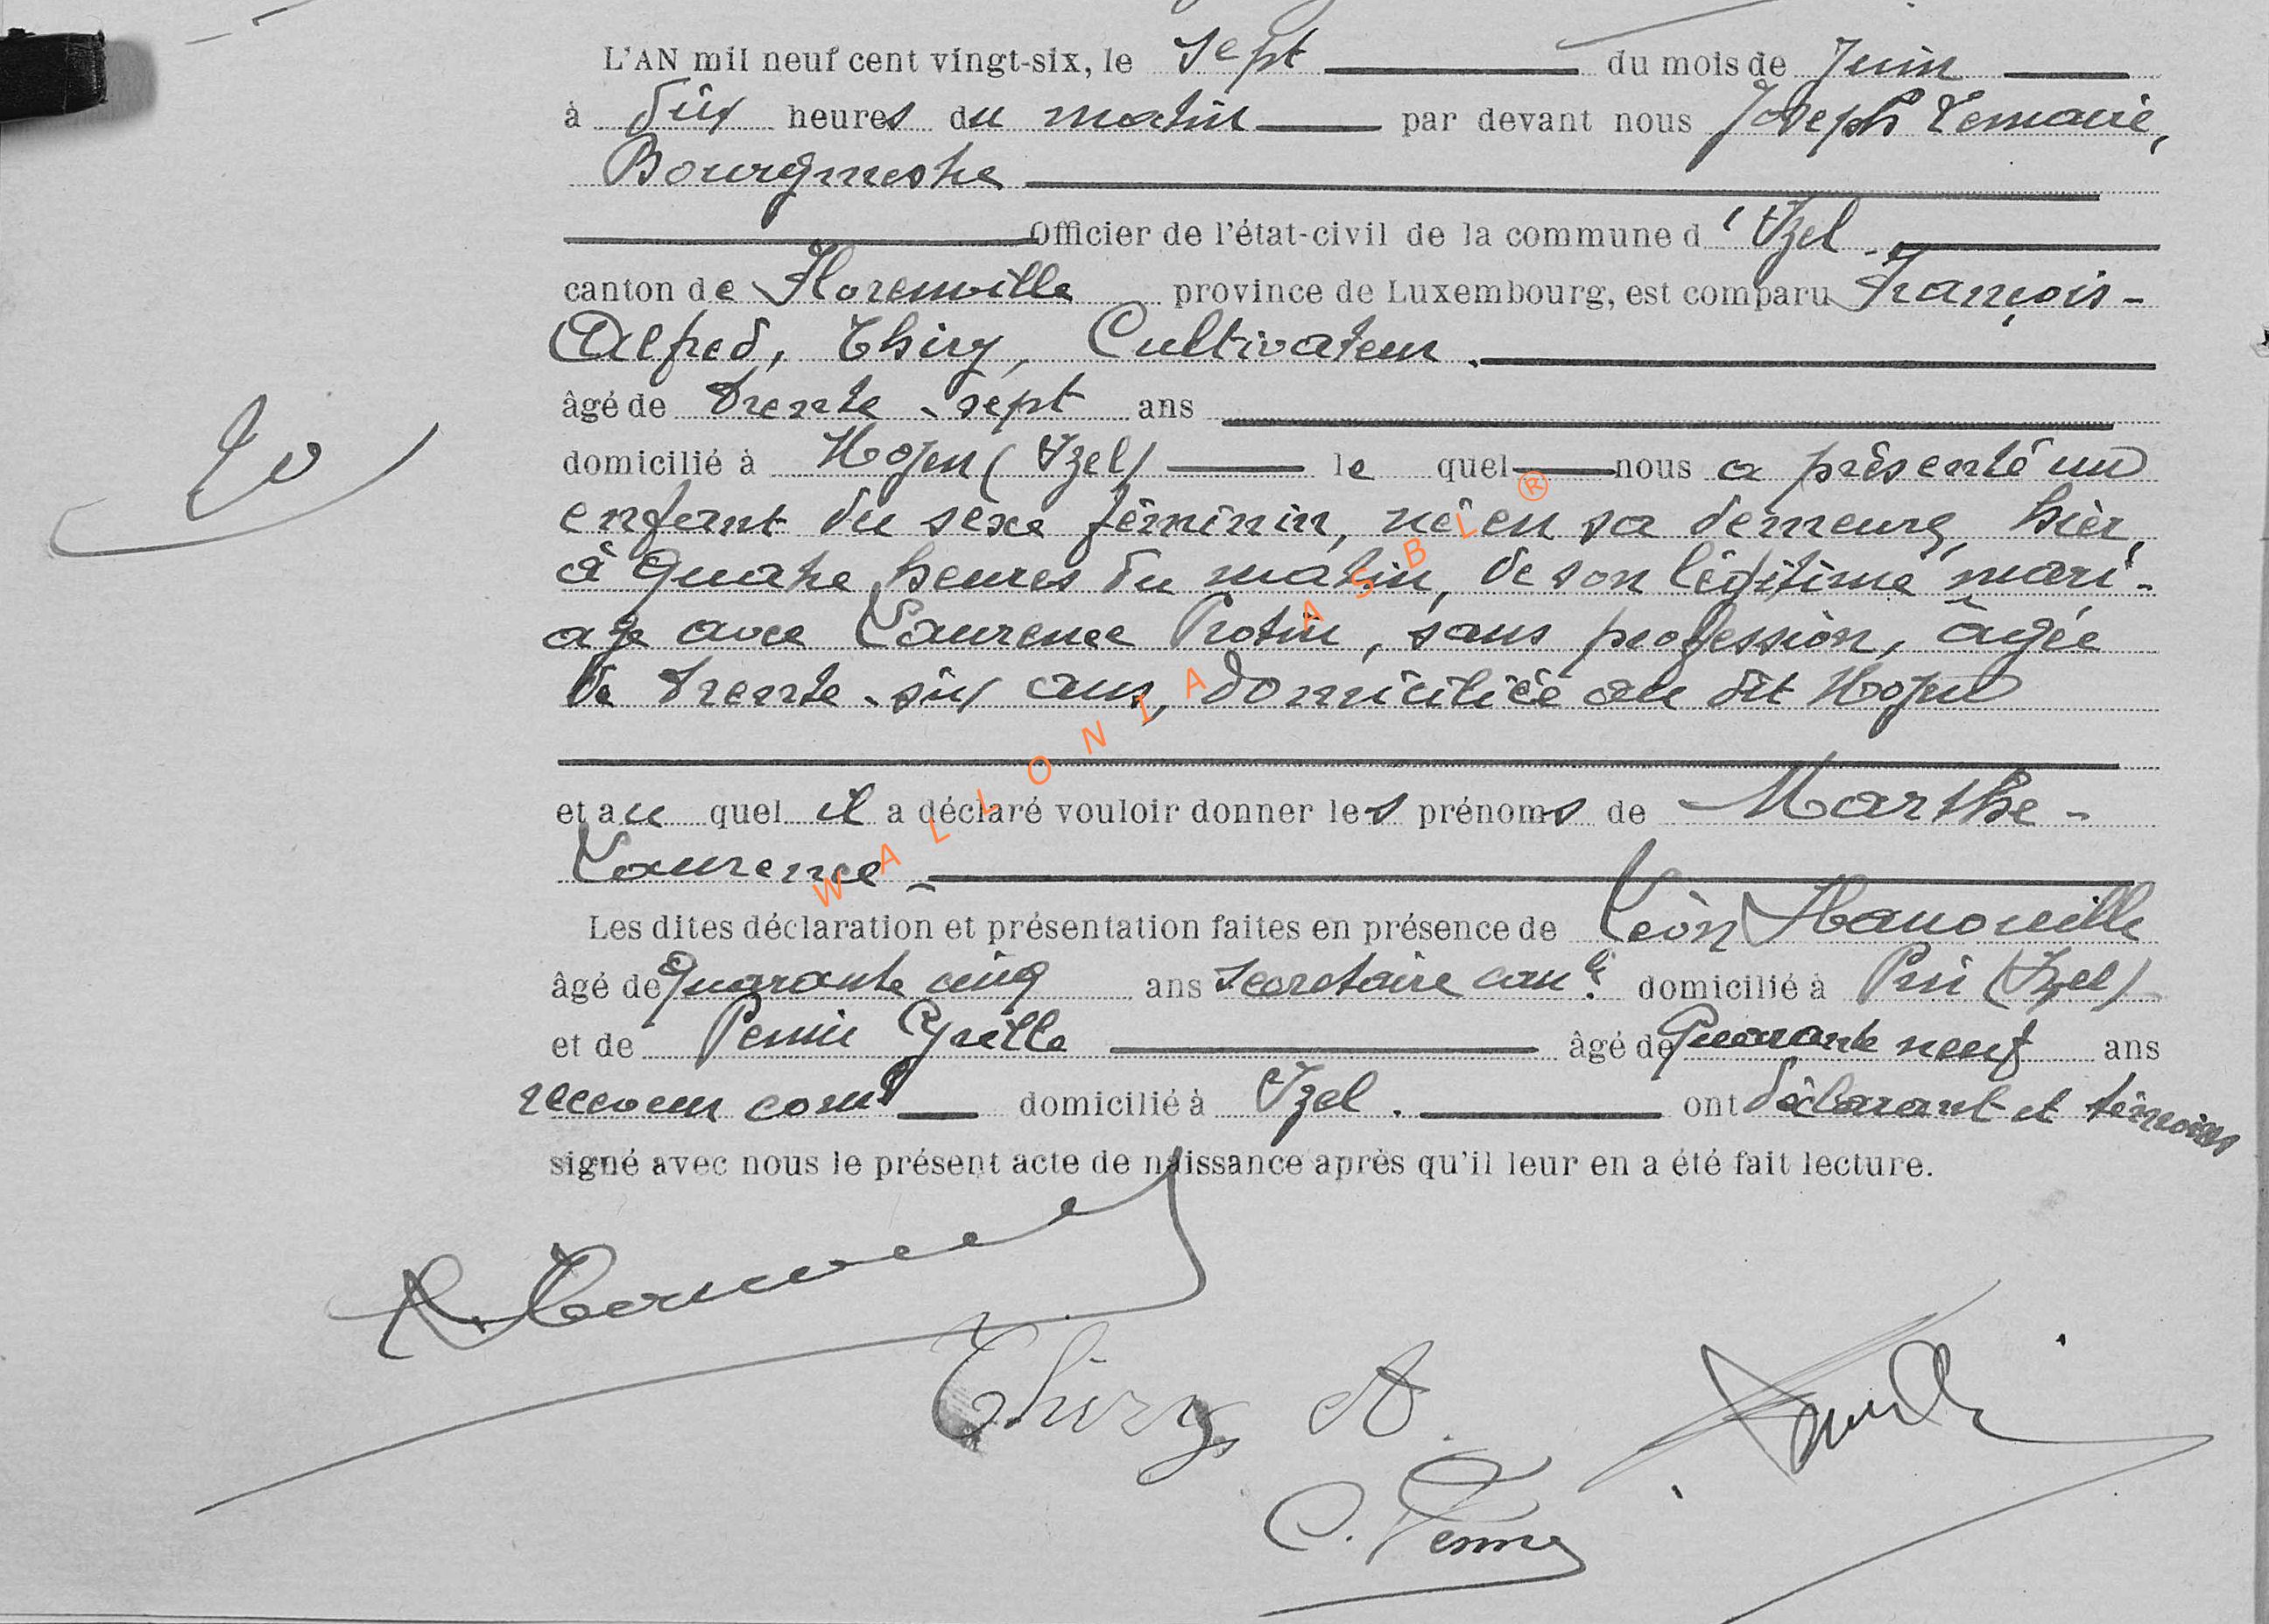 L'AN mil neuf cent vingt-six, le sept du mois de Juin
à dix heures du matin par devant nous Joseph Lemaire,
Bourgmestre
Officier de l'état-civil de la commune d'Izel
canton de Florenville province de Luxembourg, est comparu François-
Alfred, Thiry, Cultivateur.
âgé de trente-sept ans
domicilié à Moyen (Izel) le quel nous a présenté un
enfant du sexe féminin, né en sa demeure, hier,
à quatre heures du matin, de son légitime mari-
age avec Laurence Protin, sans profession, âgée
de trente-six ans, domiciliée au dit Moyen
et au quel il a déclaré vouloir donner les prénoms de Marthe-
Laurence
Les dites déclaration et présentation faites en présence de Léon
âgé de quarante cinq ans secretaire domicilié à Pin (Izel)
et de Cyrille âgé de quarante neuf ans
receveur coml domicilié à Izel. ont déclarant et témoins
signé avec nous le présent acte de naissance après qu'il leur en a été fait lecture.
Thiry A.
WALLONIA ASBL ®